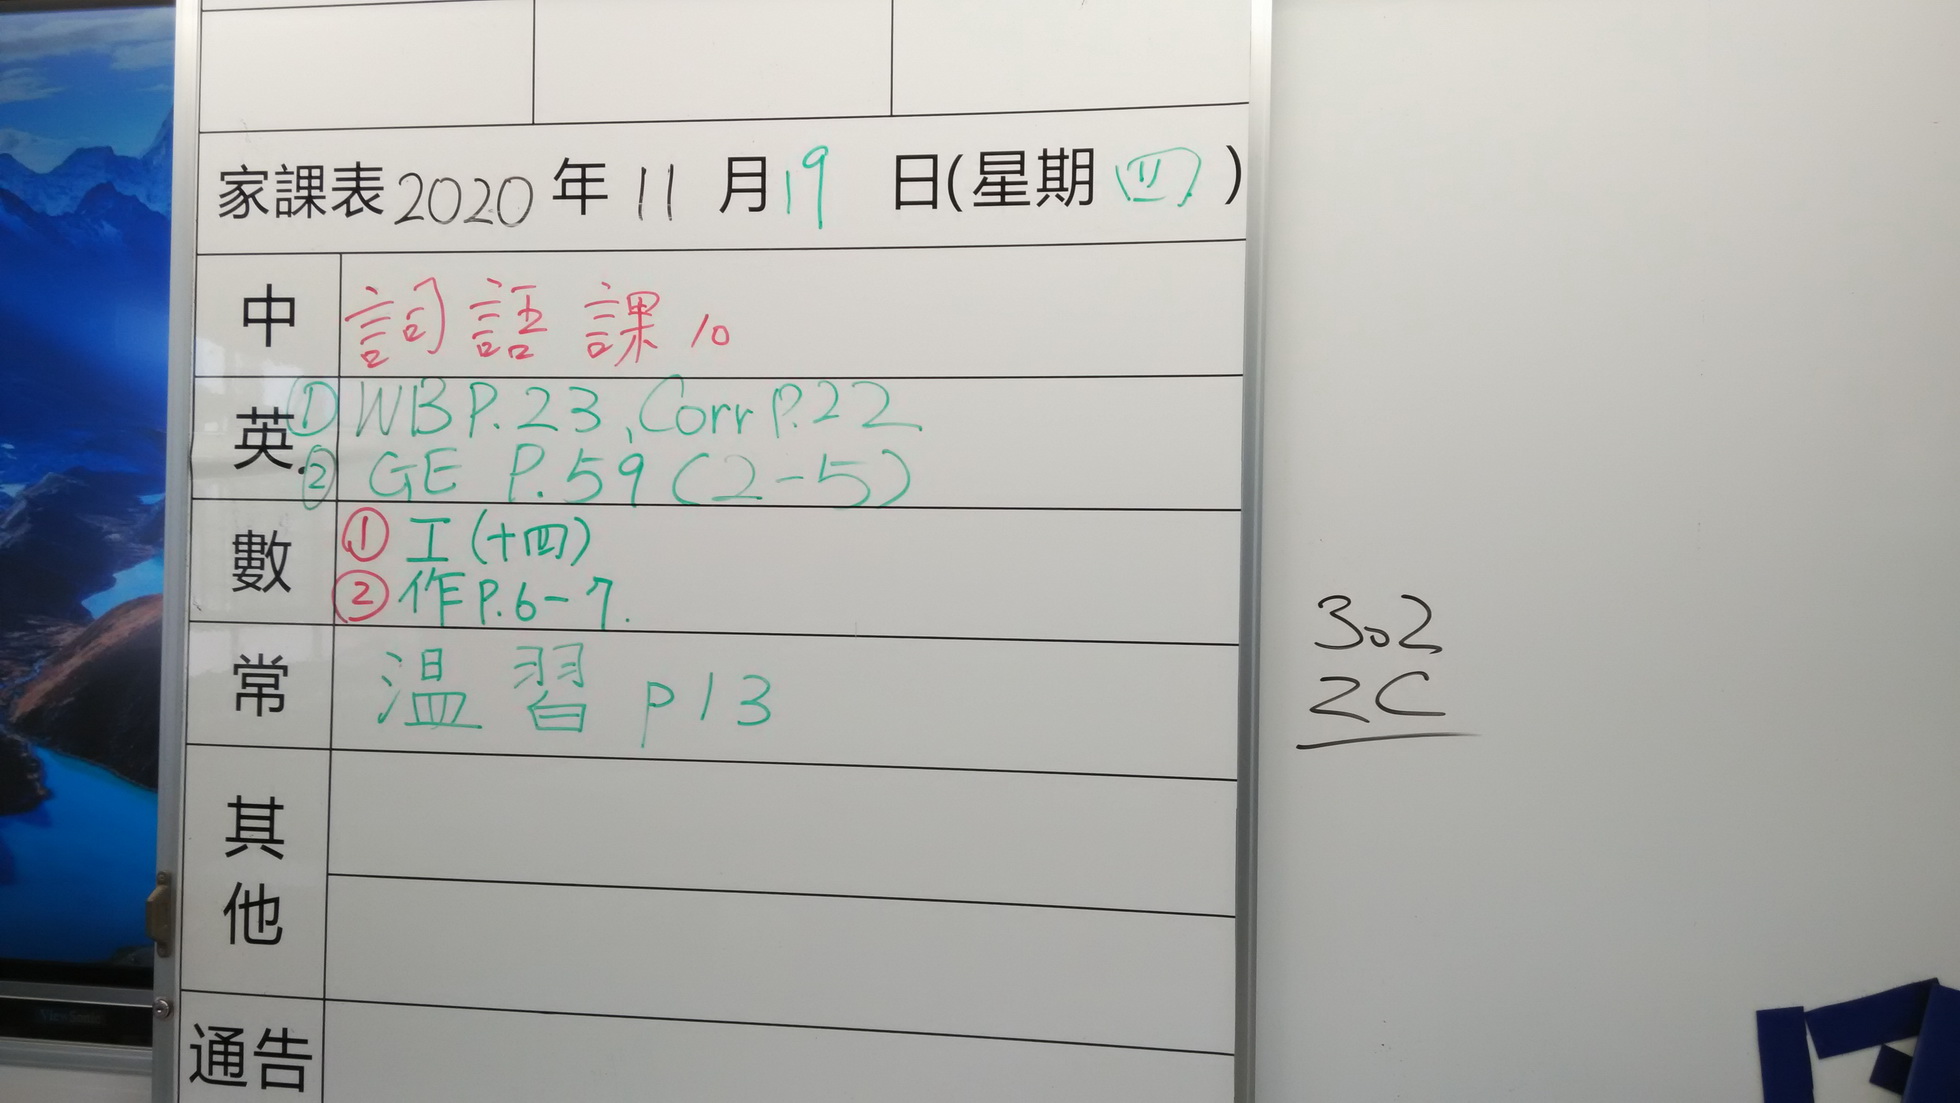 家課表2020年11月19日(星期四)
中 詞語 課10
英 ① WB P.23, Corr P.22
② GE P.59 (2-5)
數 ① 工(十四)
② 作P.6-7.
常 温習 p13
其他
通告
302
2C
ViewSonic